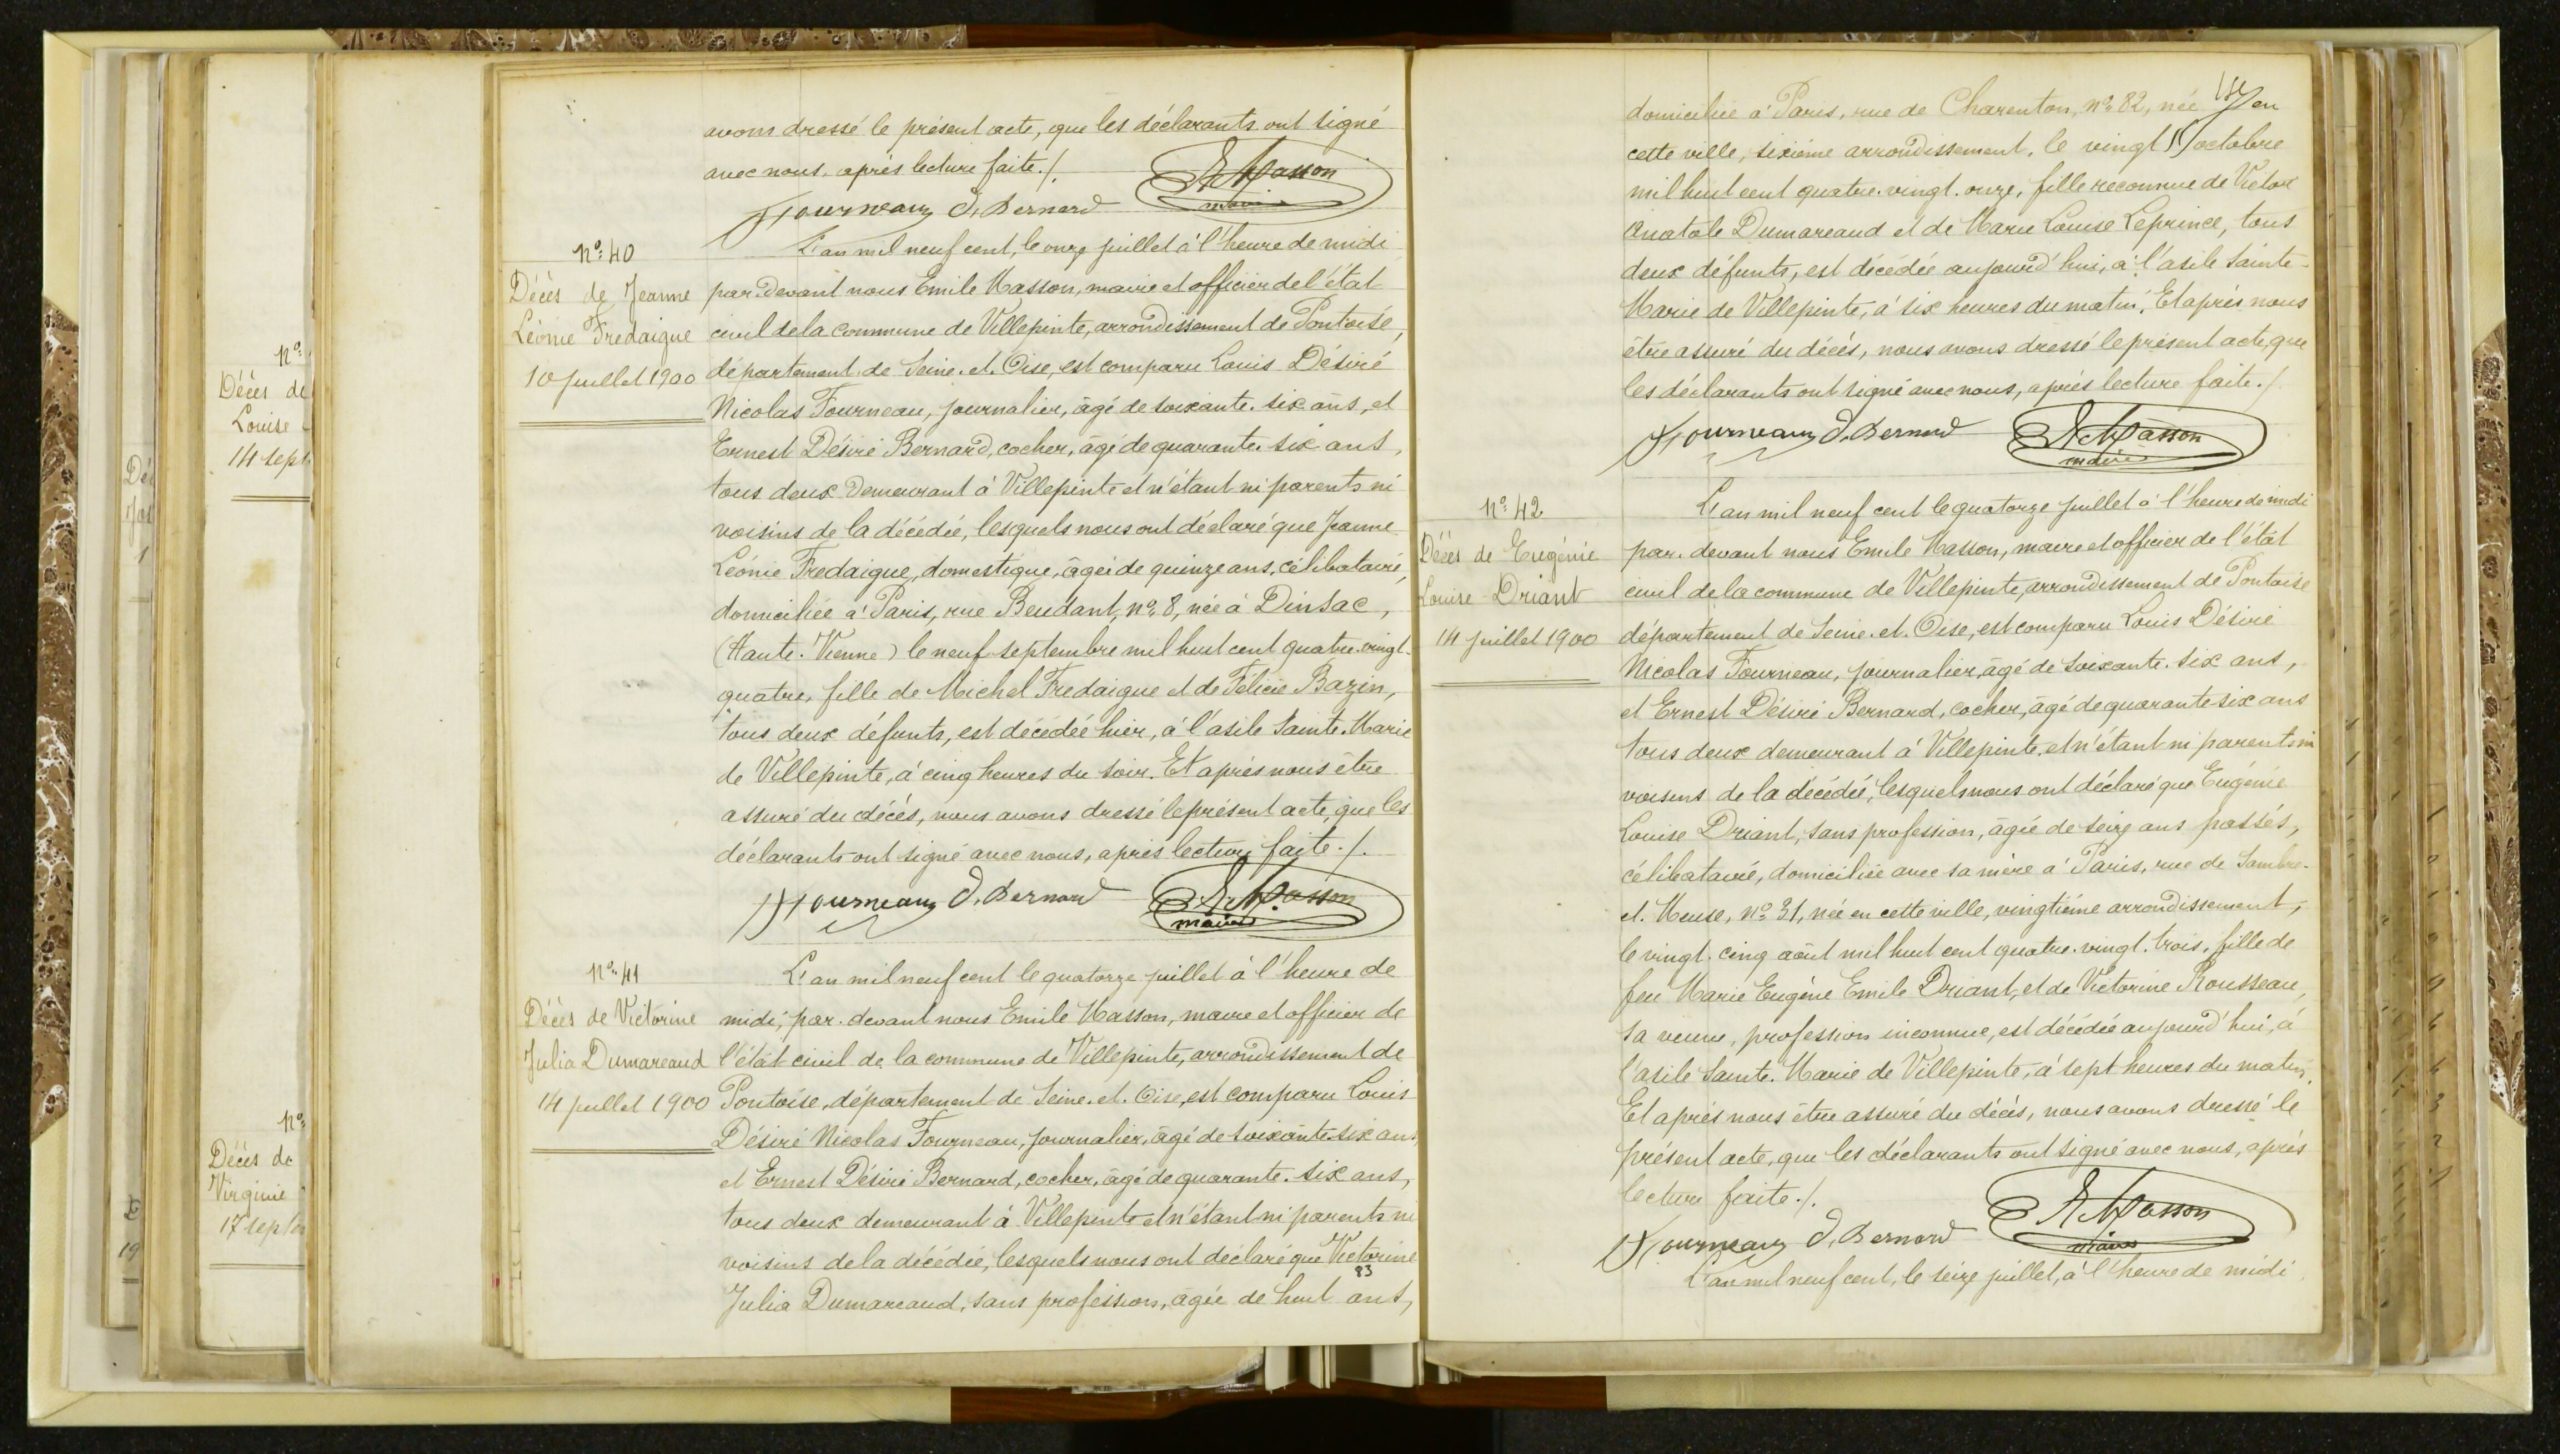 avons dressé le présent acte, que les déclarants ont signé
avec nous, après lecture faite./.
Fourneaux D. Bernard E. Masson
maire
N° 40
Décès de Jeanne
Léonie Fredaigue
10 Juillet 1900
L'an mil neuf cent, le onze juillet à l'heure de midi
par devant nous Emile Masson, maire et officier de l'état
civil de la commune de Villepinte, arrondissement de Pontoise,
département de Seine-et-Oise, est comparu Louis Désiré
Nicolas Fourneau, journalier, âgé de soixante-six ans, et
Ernest Désiré Bernard, cocher, âgé de quarante-six ans,
tous deux demeurant à Villepinte et n'étant ni parents ni
voisins de la décédée, lesquels nous ont déclaré que Jeanne
Léonie Fredaigue, domestique, âgée de quinze ans, célibataire,
domiciliée à Paris, rue Beudant, n° 8, née à Dinsac,
(Haute-Vienne) le neuf septembre mil huit cent quatre-vingt-
quatre, fille de Michel Fredaigue et de Félicie Bazin,
tous deux défunts, est décédée hier, à l'asile Sainte-Marie
de Villepinte, à cinq heures du soir. Et après nous être
assuré du décès, nous avons dressé le présent acte, que les
déclarants ont signé avec nous, après lecture faite./.
Fourneaux D. Bernard E. Masson
maire
N° 41
Décès de Victorine
Julia Dumareaud
14 juillet 1900
L'an mil neuf cent le quatorze juillet à l'heure de
midi, par-devant nous Emile Masson, maire et officier de
l'état civil de la commune de Villepinte, arrondissement de
Pontoise, département de Seine-et-Oise, est comparu Louis
Désiré Nicolas Fourneau, journalier, âgé de soixante-six ans,
et Ernest Désiré Bernard, cocher, âgé de quarante-six ans,
tous deux demeurant à Villepinte et n'étant ni parents ni
voisins de la décédée, lesquels nous ont déclaré que Victorine
83
Julia Dumareaud, sans profession, âgée de huit ans,
domiciliée à Paris, rue de Charenton, n° 82, née en
cette ville, sixième arrondissement, le vingt octobre
mil huit cent quatre-vingt-onze, fille reconnue de Victor
Anatole Dumareaud et de Marie Louise Leprince, tous
deux défunts, est décédée aujourd'hui, à l'asile Sainte-
Marie de Villepinte, à six heures du matin. Et après nous
être assuré du décès, nous avons dressé le présent acte, que
les déclarants ont signé avec nous, après lecture faite./.
Fourneaux D. Bernard E. Masson
maire
N° 42
Décès de Eugénie
Louise Driant
14 juillet 1900
L'an mil neuf cent le quatorze juillet à l'heure de midi
par-devant nous Emile Masson, maire et officier de l'état
civil de la commune de Villepinte, arrondissement de Pontoise
département de Seine-et-Oise, est comparu Louis Désiré
Nicolas Fourneau, journalier, âgé de soixante-six ans,
et Ernest Désiré Bernard, cocher, âgé de quarante-six ans
tous deux demeurant à Villepinte et n'étant ni parents ni
voisins de la décédée, lesquels nous ont déclaré que Eugénie
Louise Driant, sans profession, âgée de seize ans passés,
célibataire, domiciliée avec sa mère à Paris, rue de Sambre-
et-Meuse, n° 31, née en cette ville, vingtième arrondissement,
le vingt-cinq août mil huit cent quatre-vingt-trois, fille de
feu Marie Eugène Emile Driant, et de Victorine Rousseau,
sa veuve, profession inconnue, est décédée aujourd'hui, à
l'asile Sainte-Marie de Villepinte, à sept heures du matin.
Et après nous être assuré du décès, nous avons dressé le
présent acte, que les déclarants ont signé avec nous, après
lecture faite./.
Fourneaux D. Bernard E. Masson
maire
L'an mil neuf cent, le seize juillet, à l'heure de midi
N°
Décès de
Louise
14 sept
N°
Décès de
Virginie
17 sept